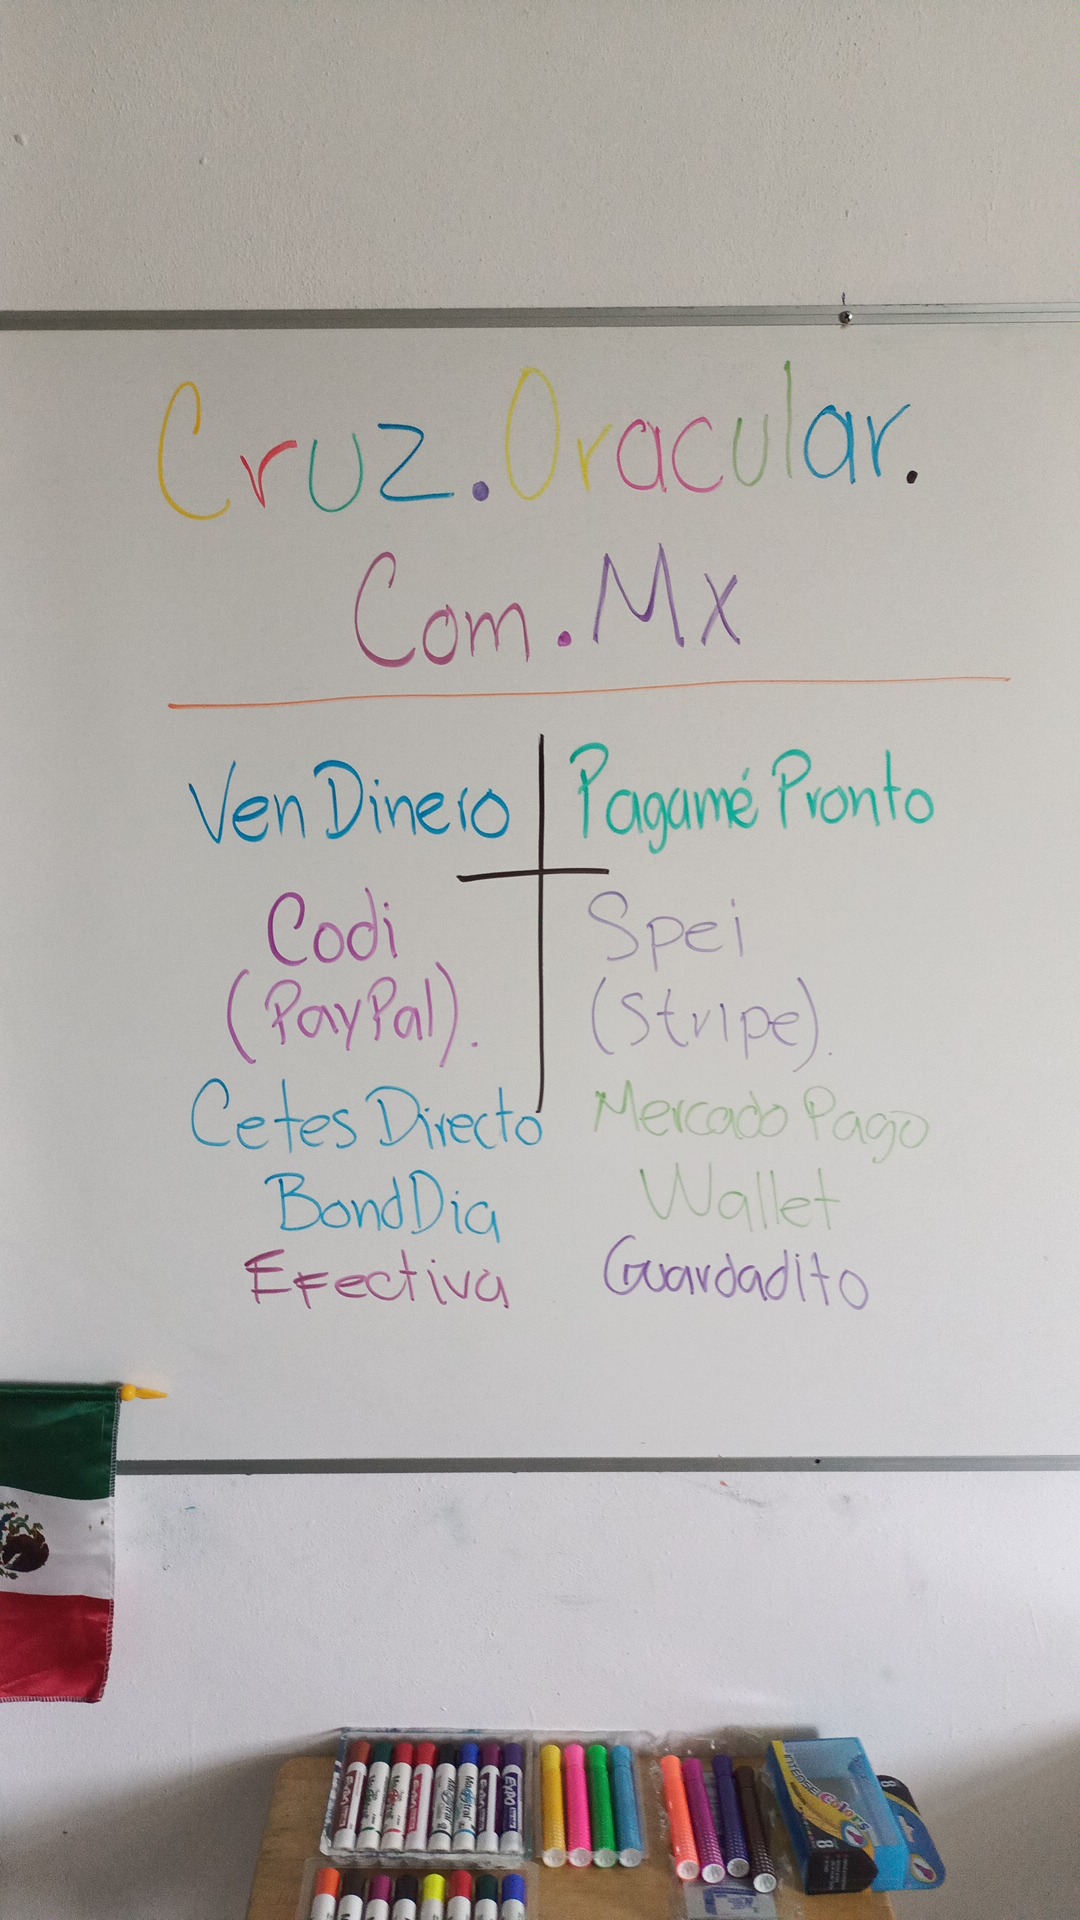 Cruz.Oracular.
Com.Mx
Ven Dinero
Pagamé Pronto
Codi
(PayPal).
Spei
(Stripe).
Cetes Directo
BondDia
Efectiva
Mercado Pago
Wallet
Guardadito
EXPO
Magistral
EXPO
EXPO
INTENSE Colors
8
8